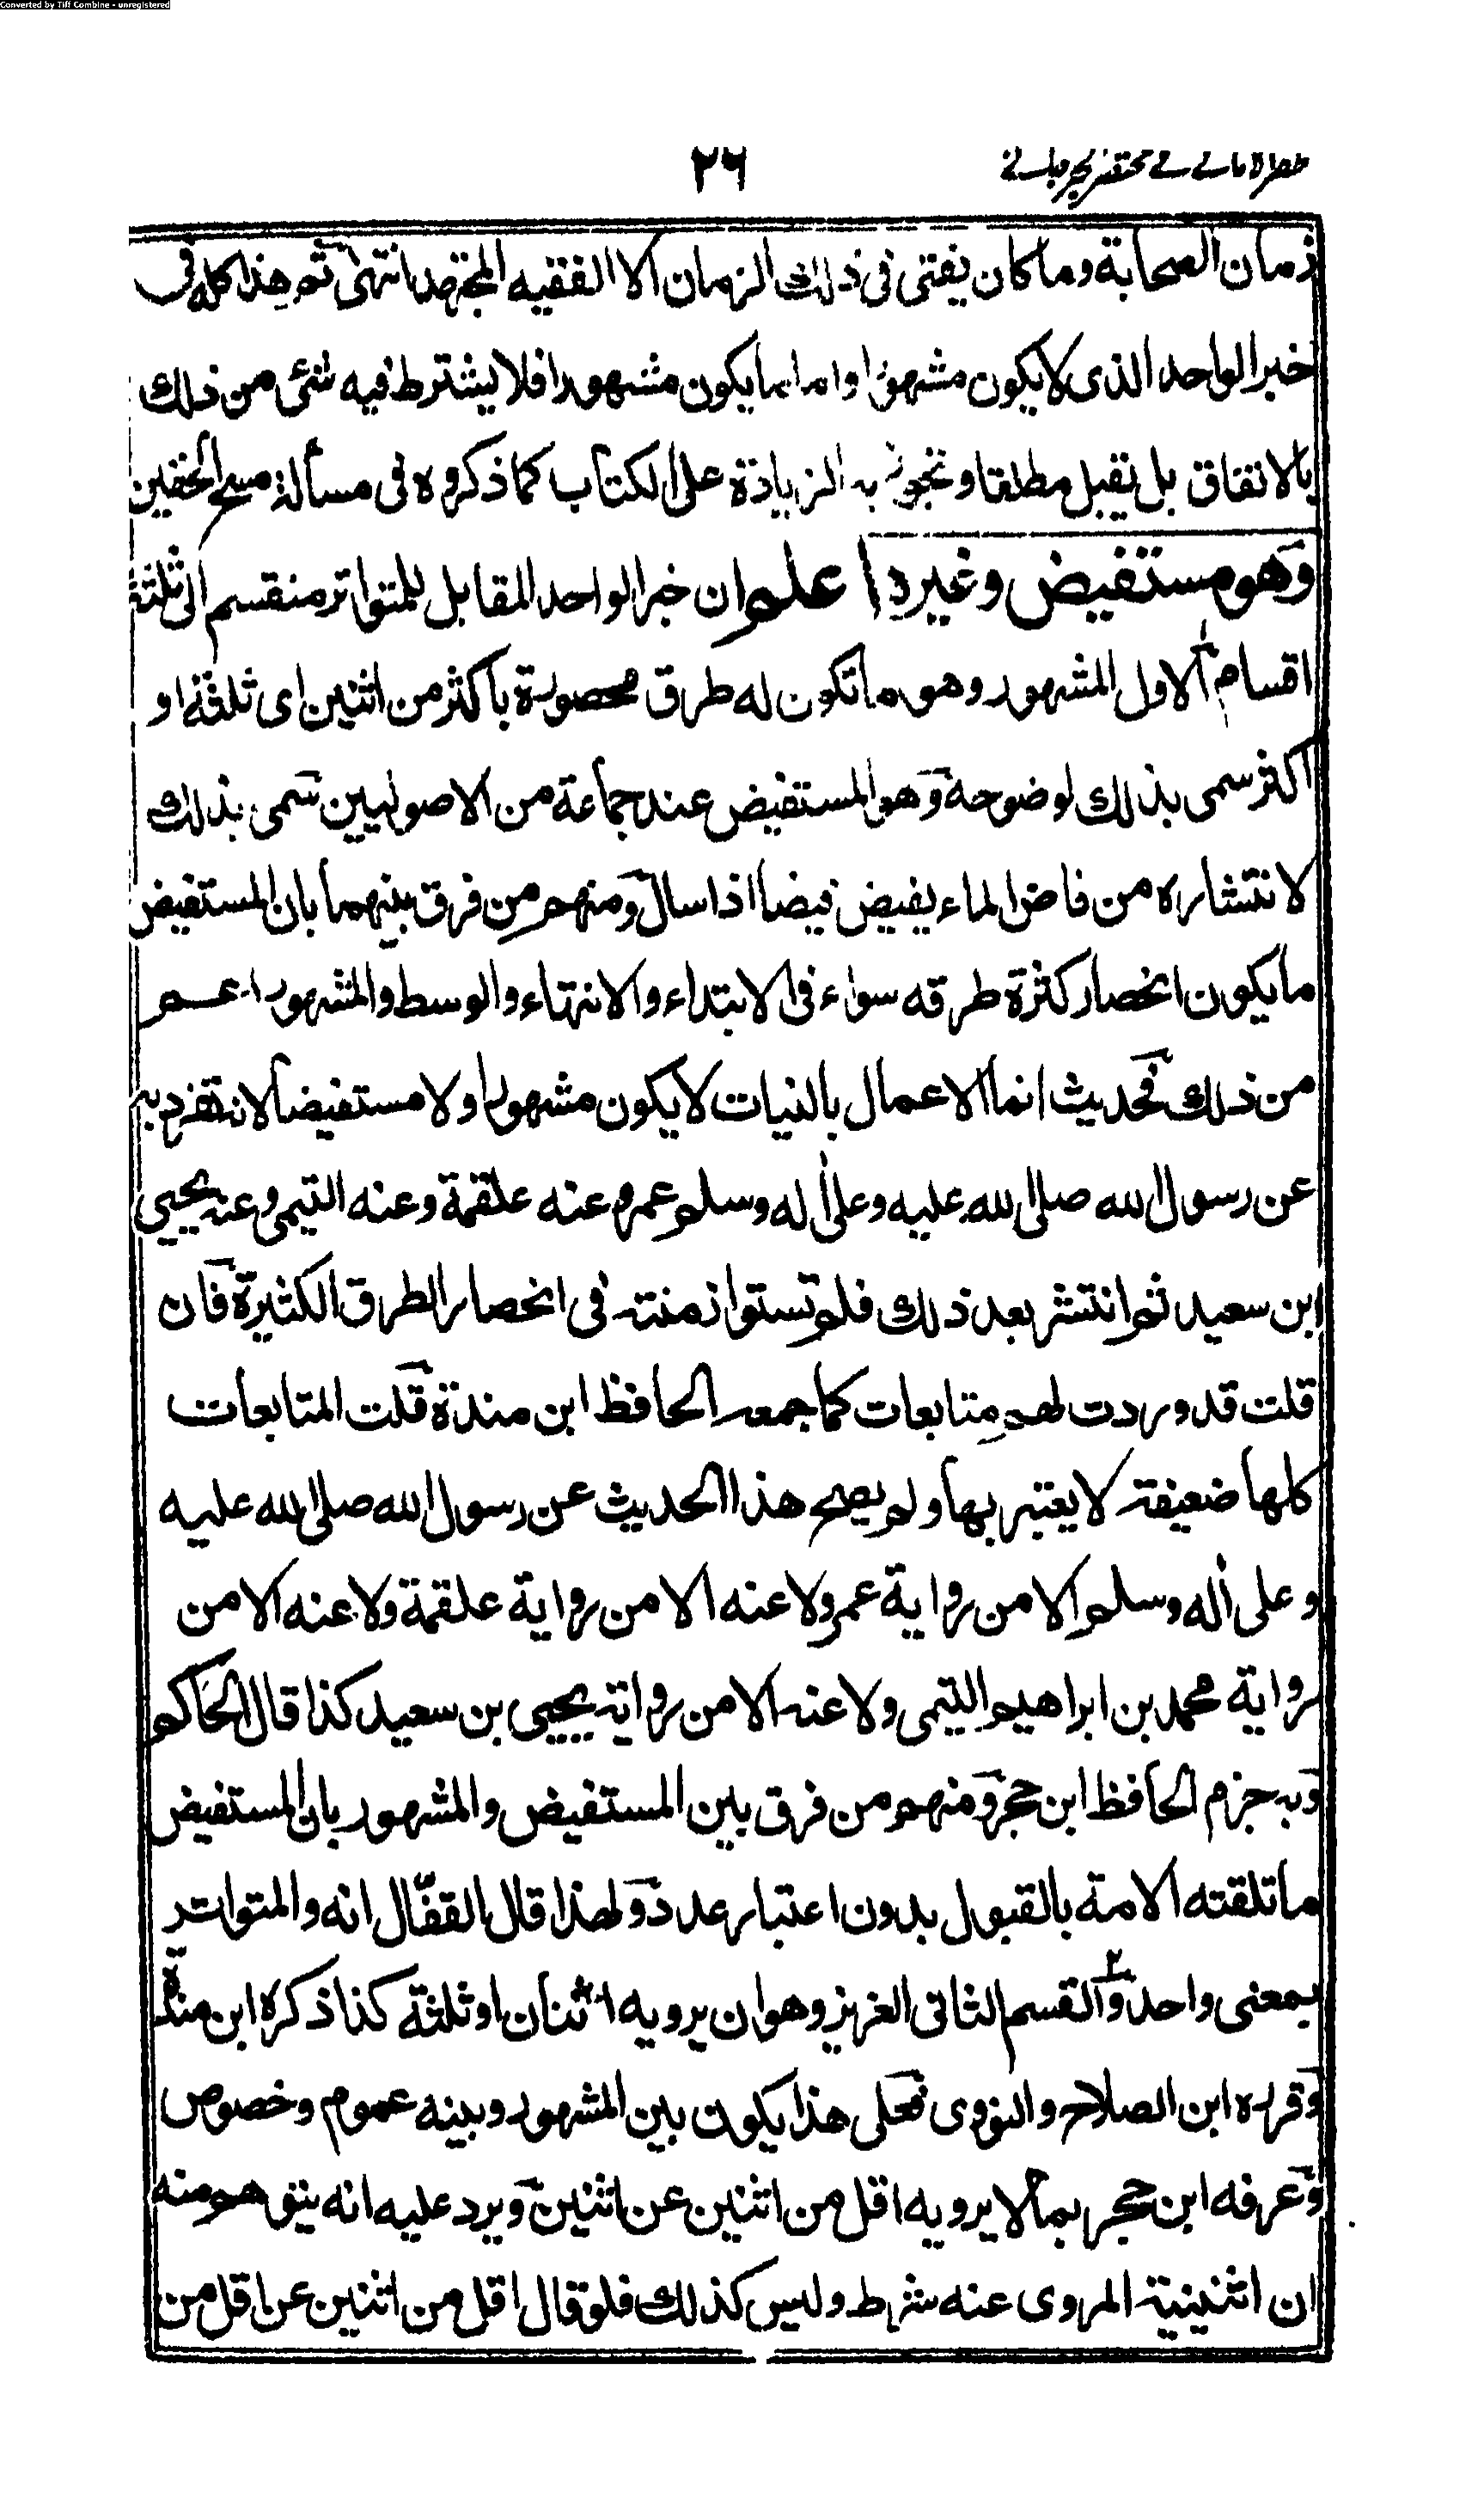 Converted by Tiff Combine - unregistered
ظفر الامانی فی مختصر الجرجانی
٢٦
زمان الصحابة وما كان يفتى فى ذلك الزمان الا الفقيه المجتهد انتهى ثم هذا كله فى
خبر الواحد الذى لا يكون مشهورا واما ما يكون مشهورا فلا يشترط فيه شئ من ذلك
بالاتفاق بل يقبل مطلقا وتجوز به الزيادة على الكتاب كما ذكروه فى مسألة مسح الخفين
وهو مستفيض وغيره اعلم ان خبر الواحد المقابل للمتواتر منقسم الى ثلثة
اقسام الاول المشهور وهو ما تكون له طرق محصورة باكثر من اثنين اى ثلثة او
اكثر سمى بذلك لوضوحه وهو المستفيض عند جماعة من الاصوليين سمى بذلك
لانتشاره من فاض الماء يفيض فيضا اذا سال ومنهم من فرق بينهما بان المستفيض
ما يكون انحصار كثرة طرقه سواء فى الابتداء والانتهاء والوسط والمشهور اعم
من ذلك فحديث انما الاعمال بالنيات لا يكون مشهورا ولا مستفيضا لانه تفرد به
عن رسول الله صلى الله عليه وعلى اله وسلم عمر وعنه علقمة وعنه التيمى وعنه يحيى
ابن سعيد ثم انتشر بعد ذلك فلم تستو ازمنته فى انحصار الطرق الكثيرة فان
قلت قد وردت لهم متابعات كما جمعه الحافظ ابن مندة قلت المتابعات
كلها ضعيفة لا يعتبر بها ولم يصح هذا الحديث عن رسول الله صلى الله عليه
وعلى اله وسلم الا من رواية عمر ولا عنه الا من رواية علقمة ولا عنه الا من
رواية محمد بن ابراهيم التيمى ولا عنه الا من رواية يحيى بن سعيد كذا قال الحاكم
وبه جزم الحافظ ابن حجر ومنهم من فرق بين المستفيض والمشهور بان المستفيض
ما تلقته الامة بالقبول بدون اعتبار عدد ولهذا قال القفّال انه والمتواتر
بمعنى واحد والقسم الثانى العزيز وهو ان يرويه اثنان او ثلثة كذا ذكره ابن مندة
وقرره ابن الصلاح والنووى فعلى هذا يكون بين المشهور وبينه عموم وخصوص
وعرفه ابن حجر بما لا يرويه اقل من اثنين عن اثنين ويرد عليه انه يتوهم منه
ان اثنينية المروى عنه شرط وليس كذلك فلو قال اقل من اثنين عن اقل من